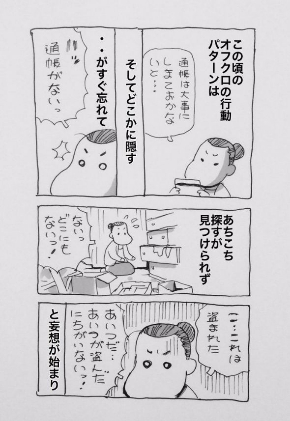 この頃の
オフクロの行動
パターンは
通帳は大事に
しまておかな
いと…
そしてどこかに隠す
・・がすぐ忘れて
通帳がないっ
あちこち
探すが
見つけられず
ないっ
どこにも
ないっ!
こ…これは
盗まれた
あいつだ…
あいつが盗んだ
にちがいないっ!
と妄想が始まり